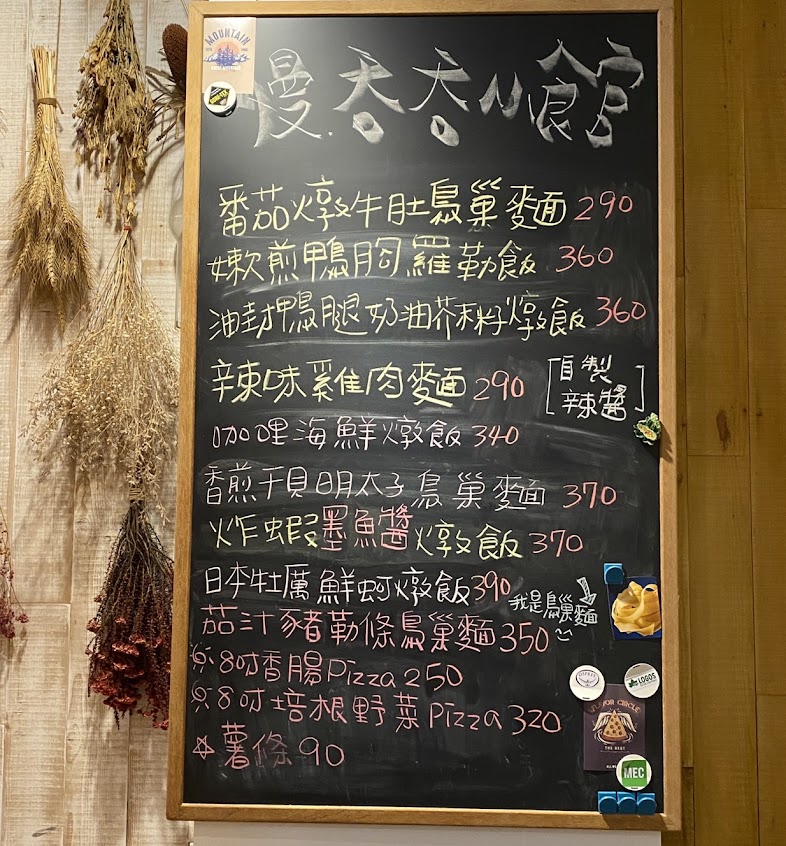 MOUNTAIN
慢.吞吞小餐館
番茄燉牛肚鳥巢麵 290
嫩煎鴨胸羅勒飯 360
油封鴨腿奶油芥籽燉飯 360
辣味雞肉麵 290 [自製辣醬]
咖哩海鮮燉飯 340
香煎干貝明太子鳥巢麵 370
炸蝦墨魚醬燉飯 370
日本牡蠣鮮蚵燉飯 390
我是鳥巢麵
茄汁豬勒條鳥巢麵 350
※8吋香腸pizza 250
※8吋培根野菜pizza 320
☆薯條 90
LOGOS
THE BEST
MEC